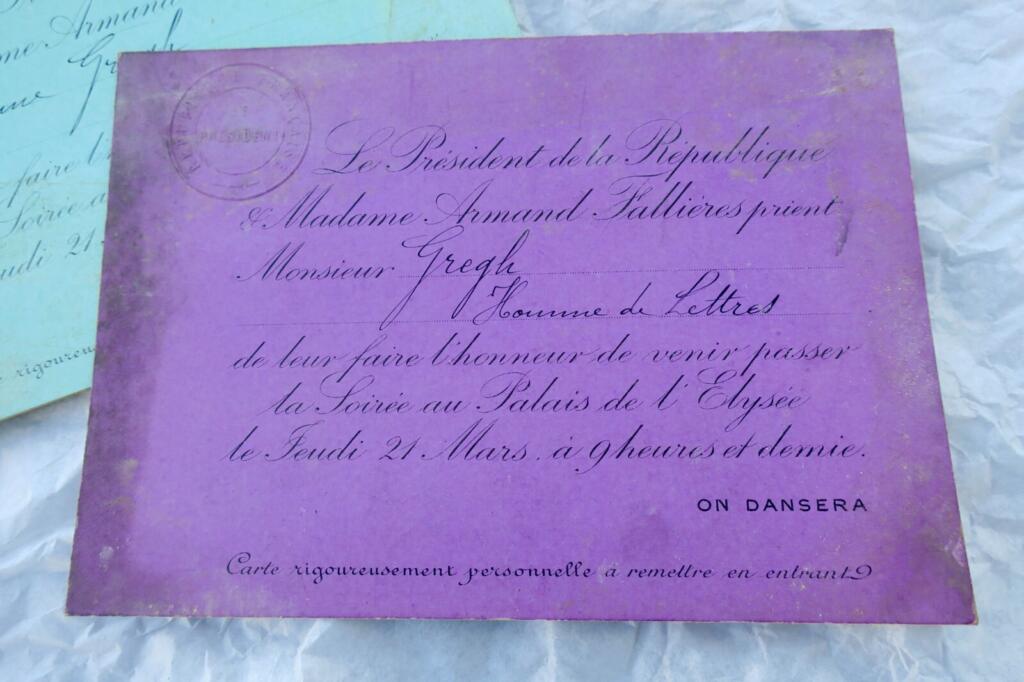 me Armand
Gregh
faire l'h
Soirée a
eudi 21
rigoureu
PRESIDENT
Le Président de la République
& Madame Armand Fallières prient
Monsieur Gregh
Homme de Lettres
de leur faire l'honneur de venir passer
la Soirée au Palais de l'Elysée
le Jeudi 21 Mars. à 9 heures et demie.
ON DANSERA
Carte rigoureusement personnelle à remettre en entrant